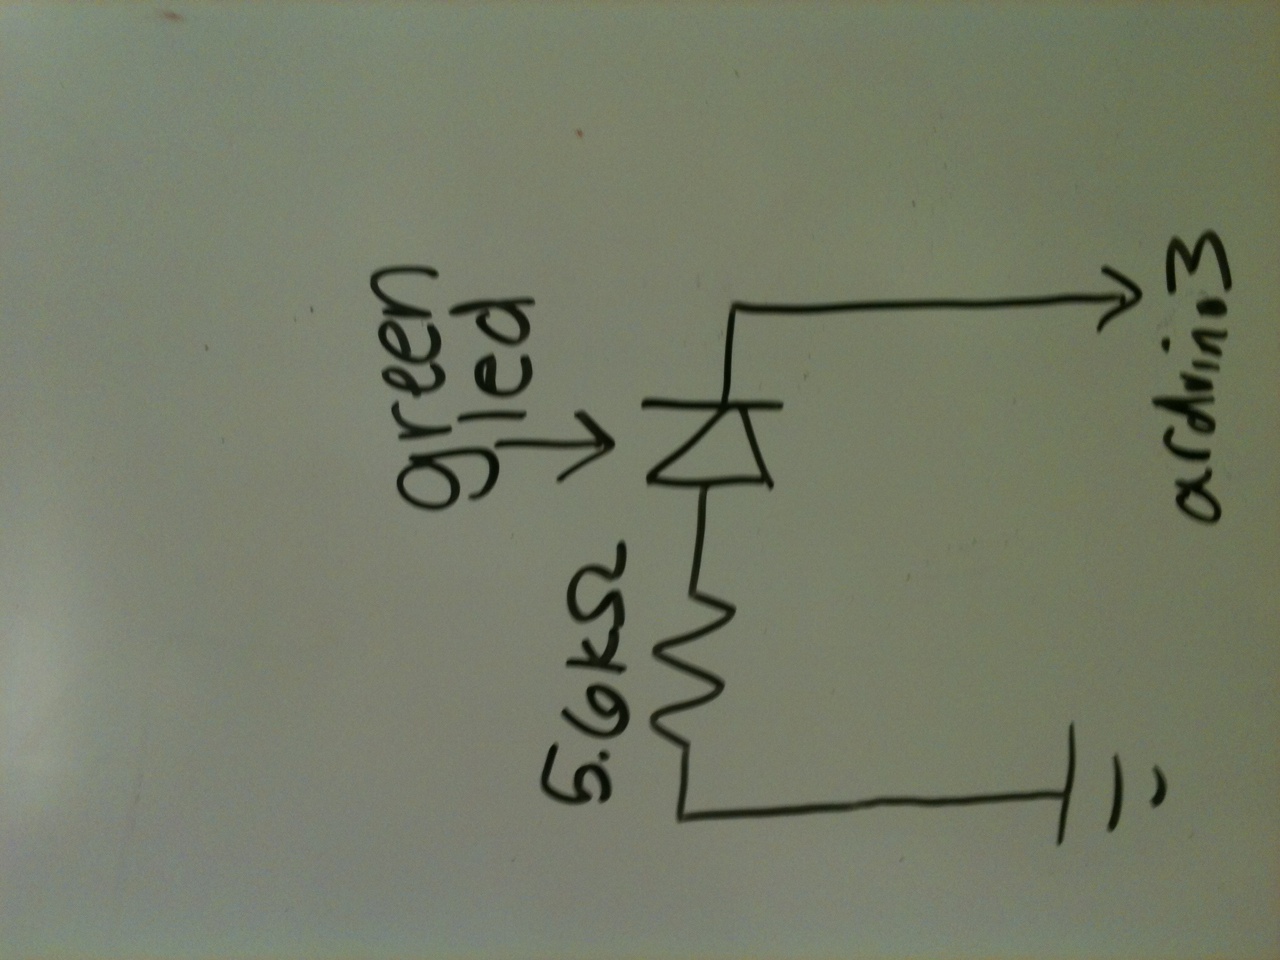 green
led
5.6kΩ
arduino3